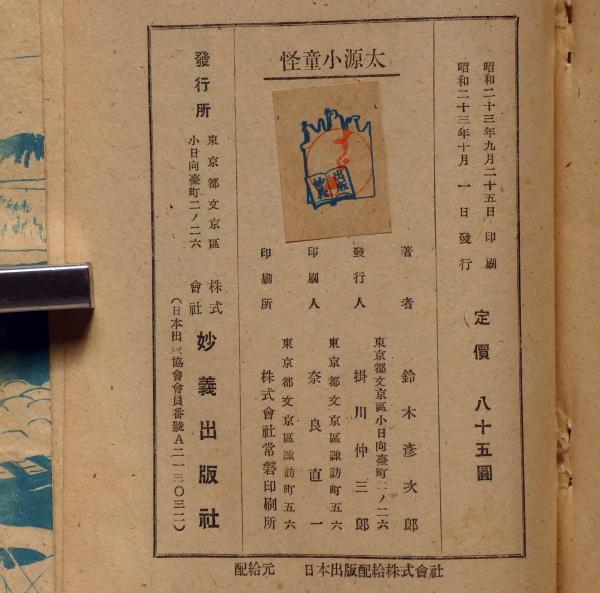 怪童小源太
昭和二十三年九月二十五日 印刷
昭和二十三年十月 一 日 發行
定價 八十五圓
著者 鈴木彦次郎
東京都文京區小日向臺町二ノ二六
發行人 掛川仲三郎
東京都文京區諏訪町五六
印刷人 奈良直一
東京都文京區諏訪町五六
印刷所 株式會社常磐印刷所
出版
妙義
發行所
東京都文京區
小日向臺町二ノ二六
株式會社 妙義出版社
(日本出版協會會員番號A二一三〇三二)
配給元 日本出版配給株式會社